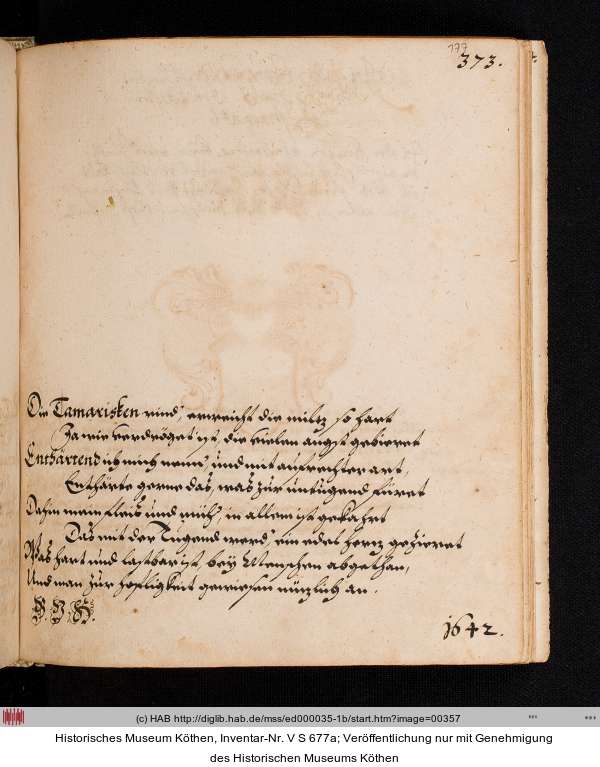 177
373.
Die Tamarisken rind, erweicht die miltz so hart
Ja wie verdrögt ist, die vielen angst gebieret
Enthärtend ich mich nenn, und mit aufrechter art,
Enthärte gerne das, was zur untugend füret
Dahin mein fleis und müh, in allem ist gekahrt
Das mit der Tugend werd, ein edel hertz gezieret
Was hart und lastbar ist, bey Menschen abgethan,
Und man zur höfligkeit gewiesen nützlich an.
1642.
(c) HAB http://diglib.hab.de/mss/ed000035-1b/start.htm?image=00357
Historisches Museum Köthen, Inventar-Nr. V S 677a; Veröffentlichung nur mit Genehmigung
des Historischen Museums Köthen